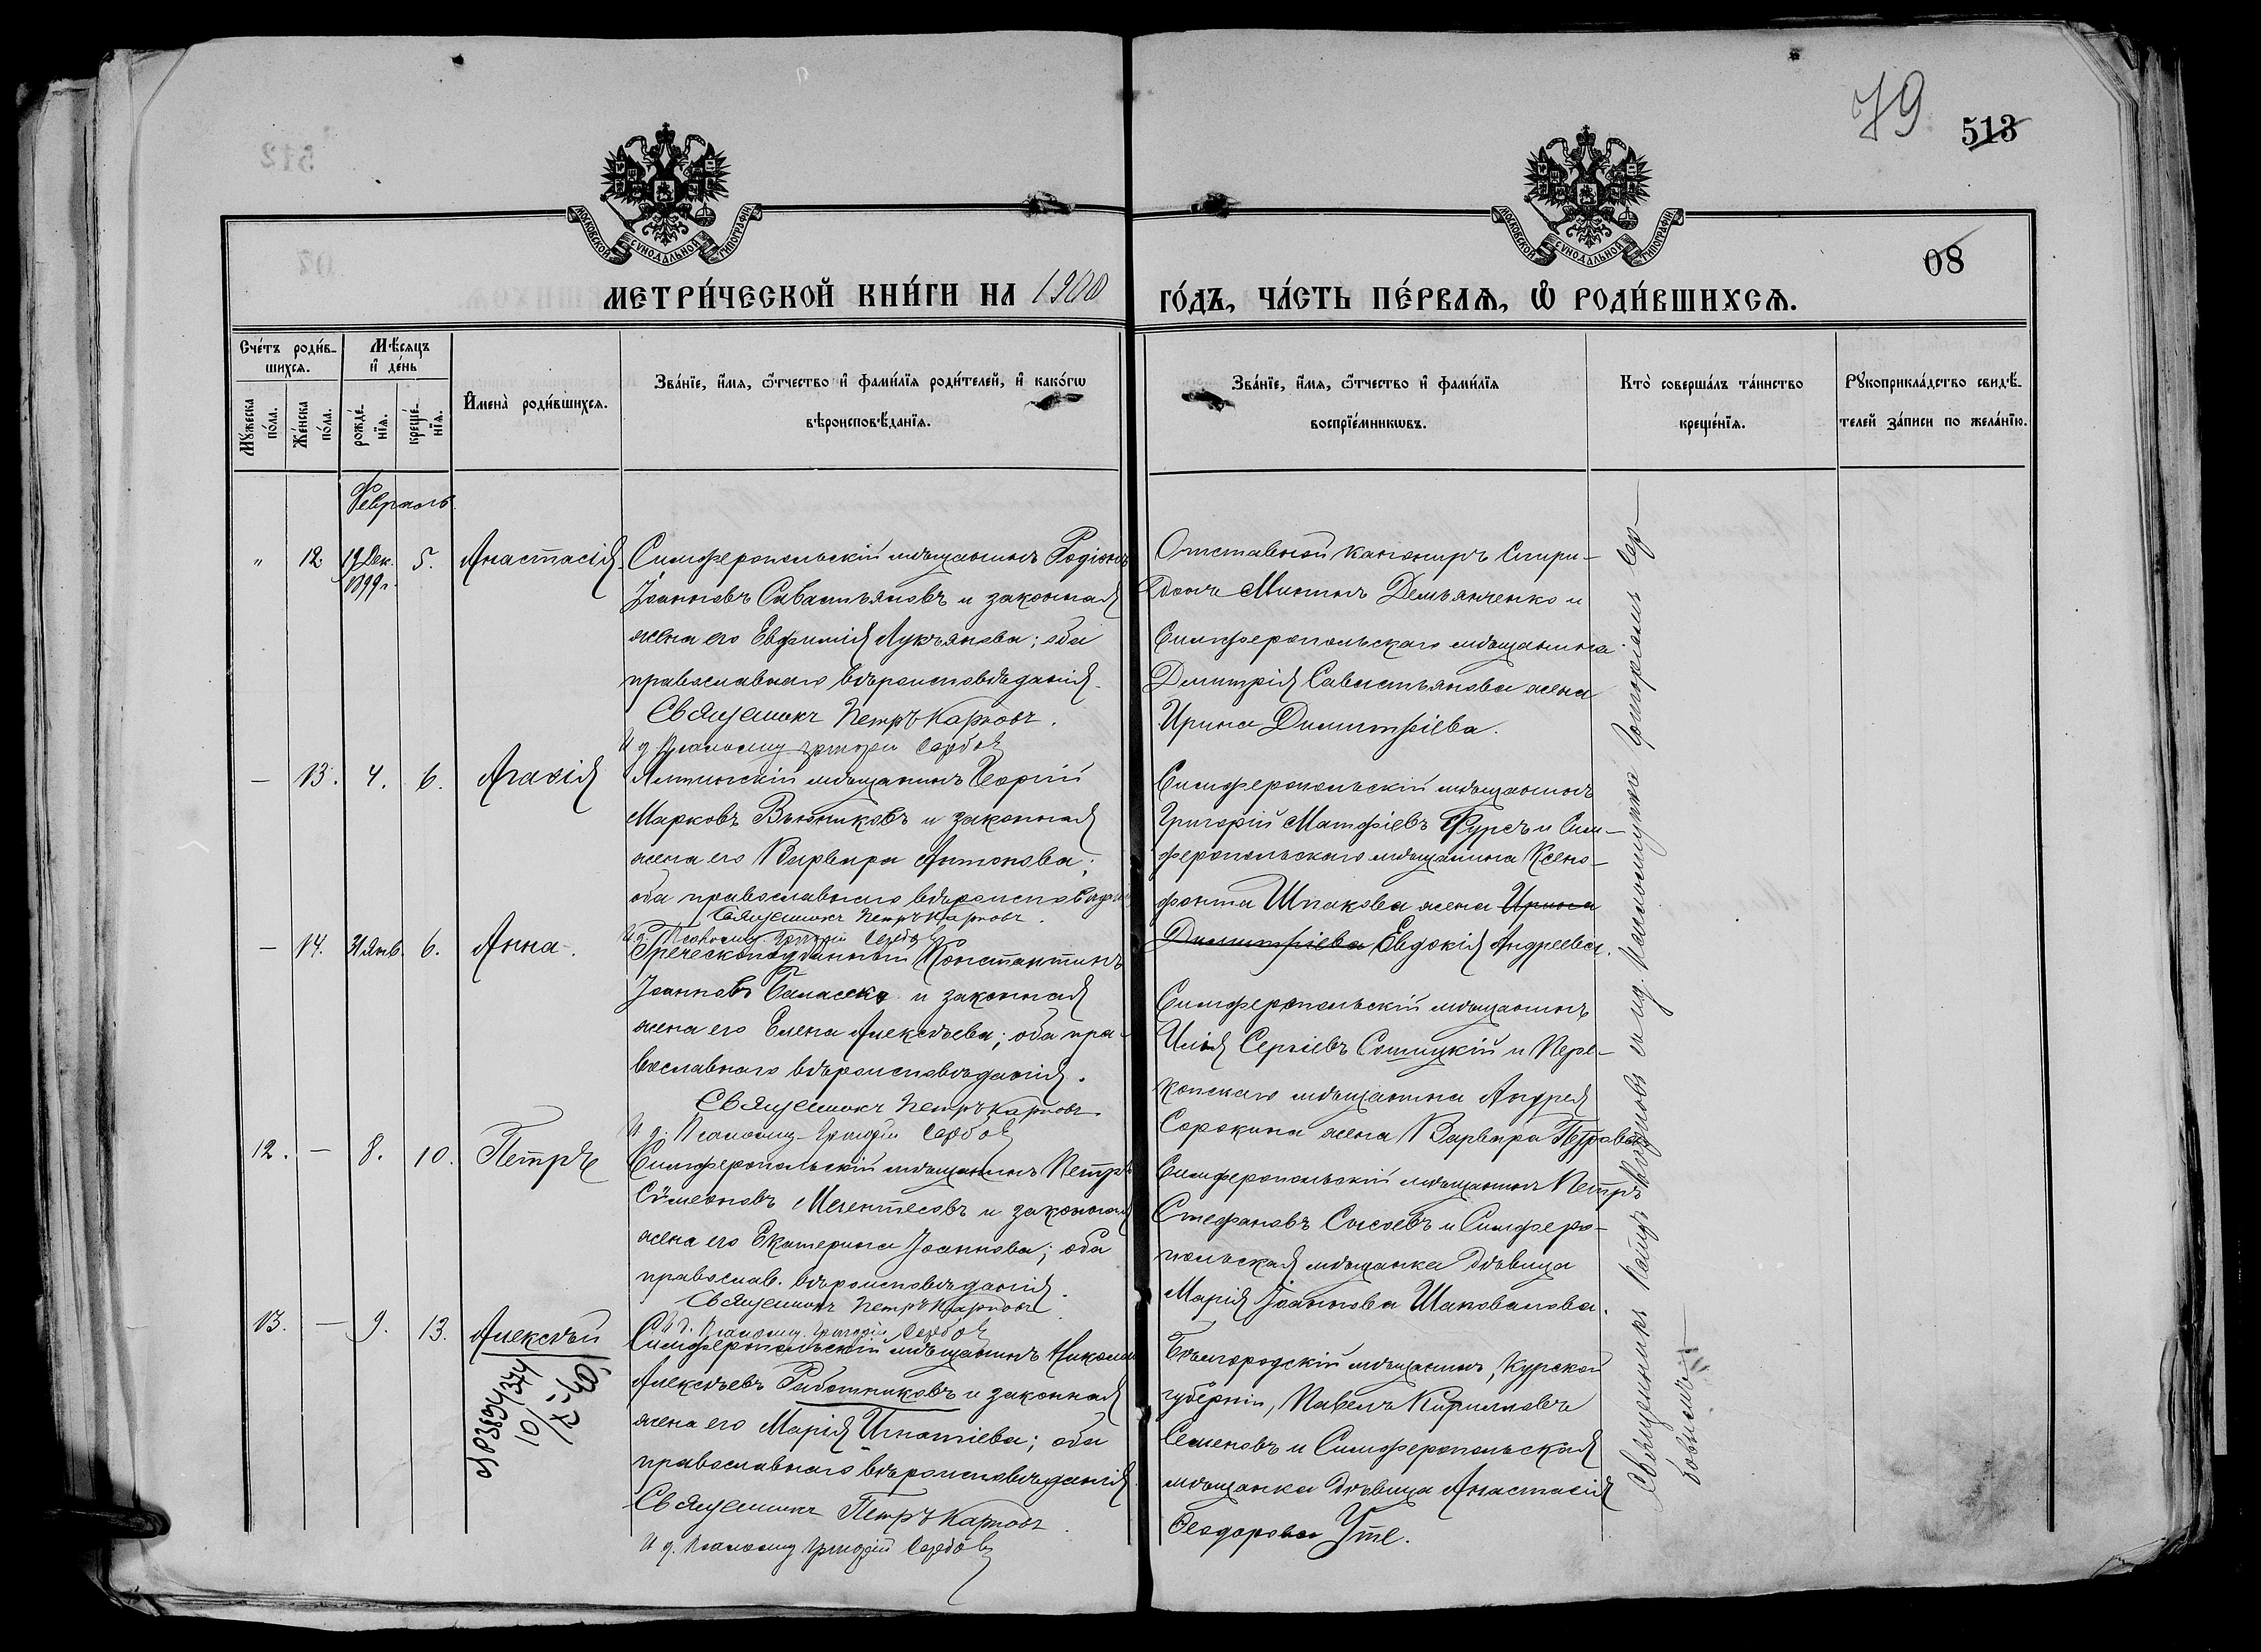 79
513
08
МОСКОВСКОЙ СѴНОДАЛЬНОЙ ТИПОГРАФІИ
МОСКОВСКОЙ СѴНОДАЛЬНОЙ ТИПОГРАФІИ
МЕТРИ́ЧЕСКОЙ КНИ́ГИ НА 1900 ГО́ДЪ, ЧА́СТЬ ПЕ́РВАѦ, Ѽ РОДИ́ВШИХСѦ.
Сче́тъ роди́вшихсѧ.
Мѣ́сѧцъ и҆ де́нь
Мꙋ́жеска по́ла.
Же́нска по́ла.
рожде́нїѧ.
креще́нїѧ.
И҆мена̀ роди́вшихсѧ.
Зва́нїе, и҆́мѧ, ѻ҆́тчество и҆ фами́лїѧ роди́телей, и҆ како́гѡ
вѣроисповѣ́данїѧ.
Зва́нїе, и҆́мѧ, ѻ҆́тчество и҆ фами́лїѧ
воспрїе́мникѡвъ.
Кто̀ соверша́лъ та́инство
креще́нїѧ.
Рꙋкоприкла́дство свидѣ́-
телей за́писи по жела́нїю.
Февраль.
" 12 19 Дек. 1899 г. 5. Анастасія.
Симферопольскій мѣщанинъ Родіонъ
Іоанновъ Савастьяновъ и законная
жена его Евфимія Лукьянова; оба
православнаго вѣроисповѣданія.
Священникъ Петръ Карповъ.
И д. Псаломщ. Григорій Сербовъ
Отставной канониръ Спири-
донъ Мининъ Демьянченко и
Симферопольскаго мѣщанина
Димитрія Савастьянова жена
Ирина Димитріева.
— 13. 4. 6. Агафія
Ялтинскій мѣщанинъ Георгій
Марковъ Вьюнниковъ и законная
жена его Варвара Антонова;
оба православнаго вѣроисповѣдан
Священникъ Петръ Карповъ.
И д. Псаломщ. Григорій Сербовъ
Симферопольскій мѣщанинъ
Григорій Матфіевъ Фурсъ и Сим-
феропольскаго мѣщанина Ксено-
фонта Шпакова жена Ирина
Димитріева Евдокія Андреева.
— 14. 31 Янв. 6. Анна.
Греческоподданный Константинъ
Іоанновъ и законная
жена его Елена Алексѣева; оба пра-
вославнаго вѣроисповѣданія.
Священникъ Петръ Карповъ
И д. Псаломщ. Григорій Сербовъ
Симферопольскій мѣщанинъ
Илья Сергіевъ и Пере-
копскаго мѣщанина Андрея
Сорокина жена Варвара Петрова.
12. — 8. 10. Петръ
Симферопольскій мѣщанинъ Петръ
Сѵмеоновъ и законная
жена его Екатерина Іоаннова; оба
православ. вѣроисповѣданія.
Священникъ Петръ Карповъ
И д. Псаломщ. Григорій Сербовъ
Симферопольскій мѣщанинъ Петръ
Стефановъ Сысоевъ и Симферо-
польская мѣщанка дѣвица
Марія Іоаннова Шаповалова.
13. — 9. 13. Алексѣй
№38941374
10/
Симферопольскій мѣщанинъ Николай
Алексѣевъ Работниковъ и законная
жена его Марія Игнатіева; оба
православнаго вѣроисповѣданія.
Священникъ Петръ Карповъ.
И д. Псаломщ Григорій Сербовъ
Бѣлгородскій мѣщанинъ, Курской
губерніи, Павелъ Кирилловъ
Семеновъ и Симферопольская
мѣщанка дѣвица Анастасія
Ѳеодорова Уте.
Священникъ Петръ Карповъ съ и.д. Псаломщика Григоріемъ Сер-
бовымъ